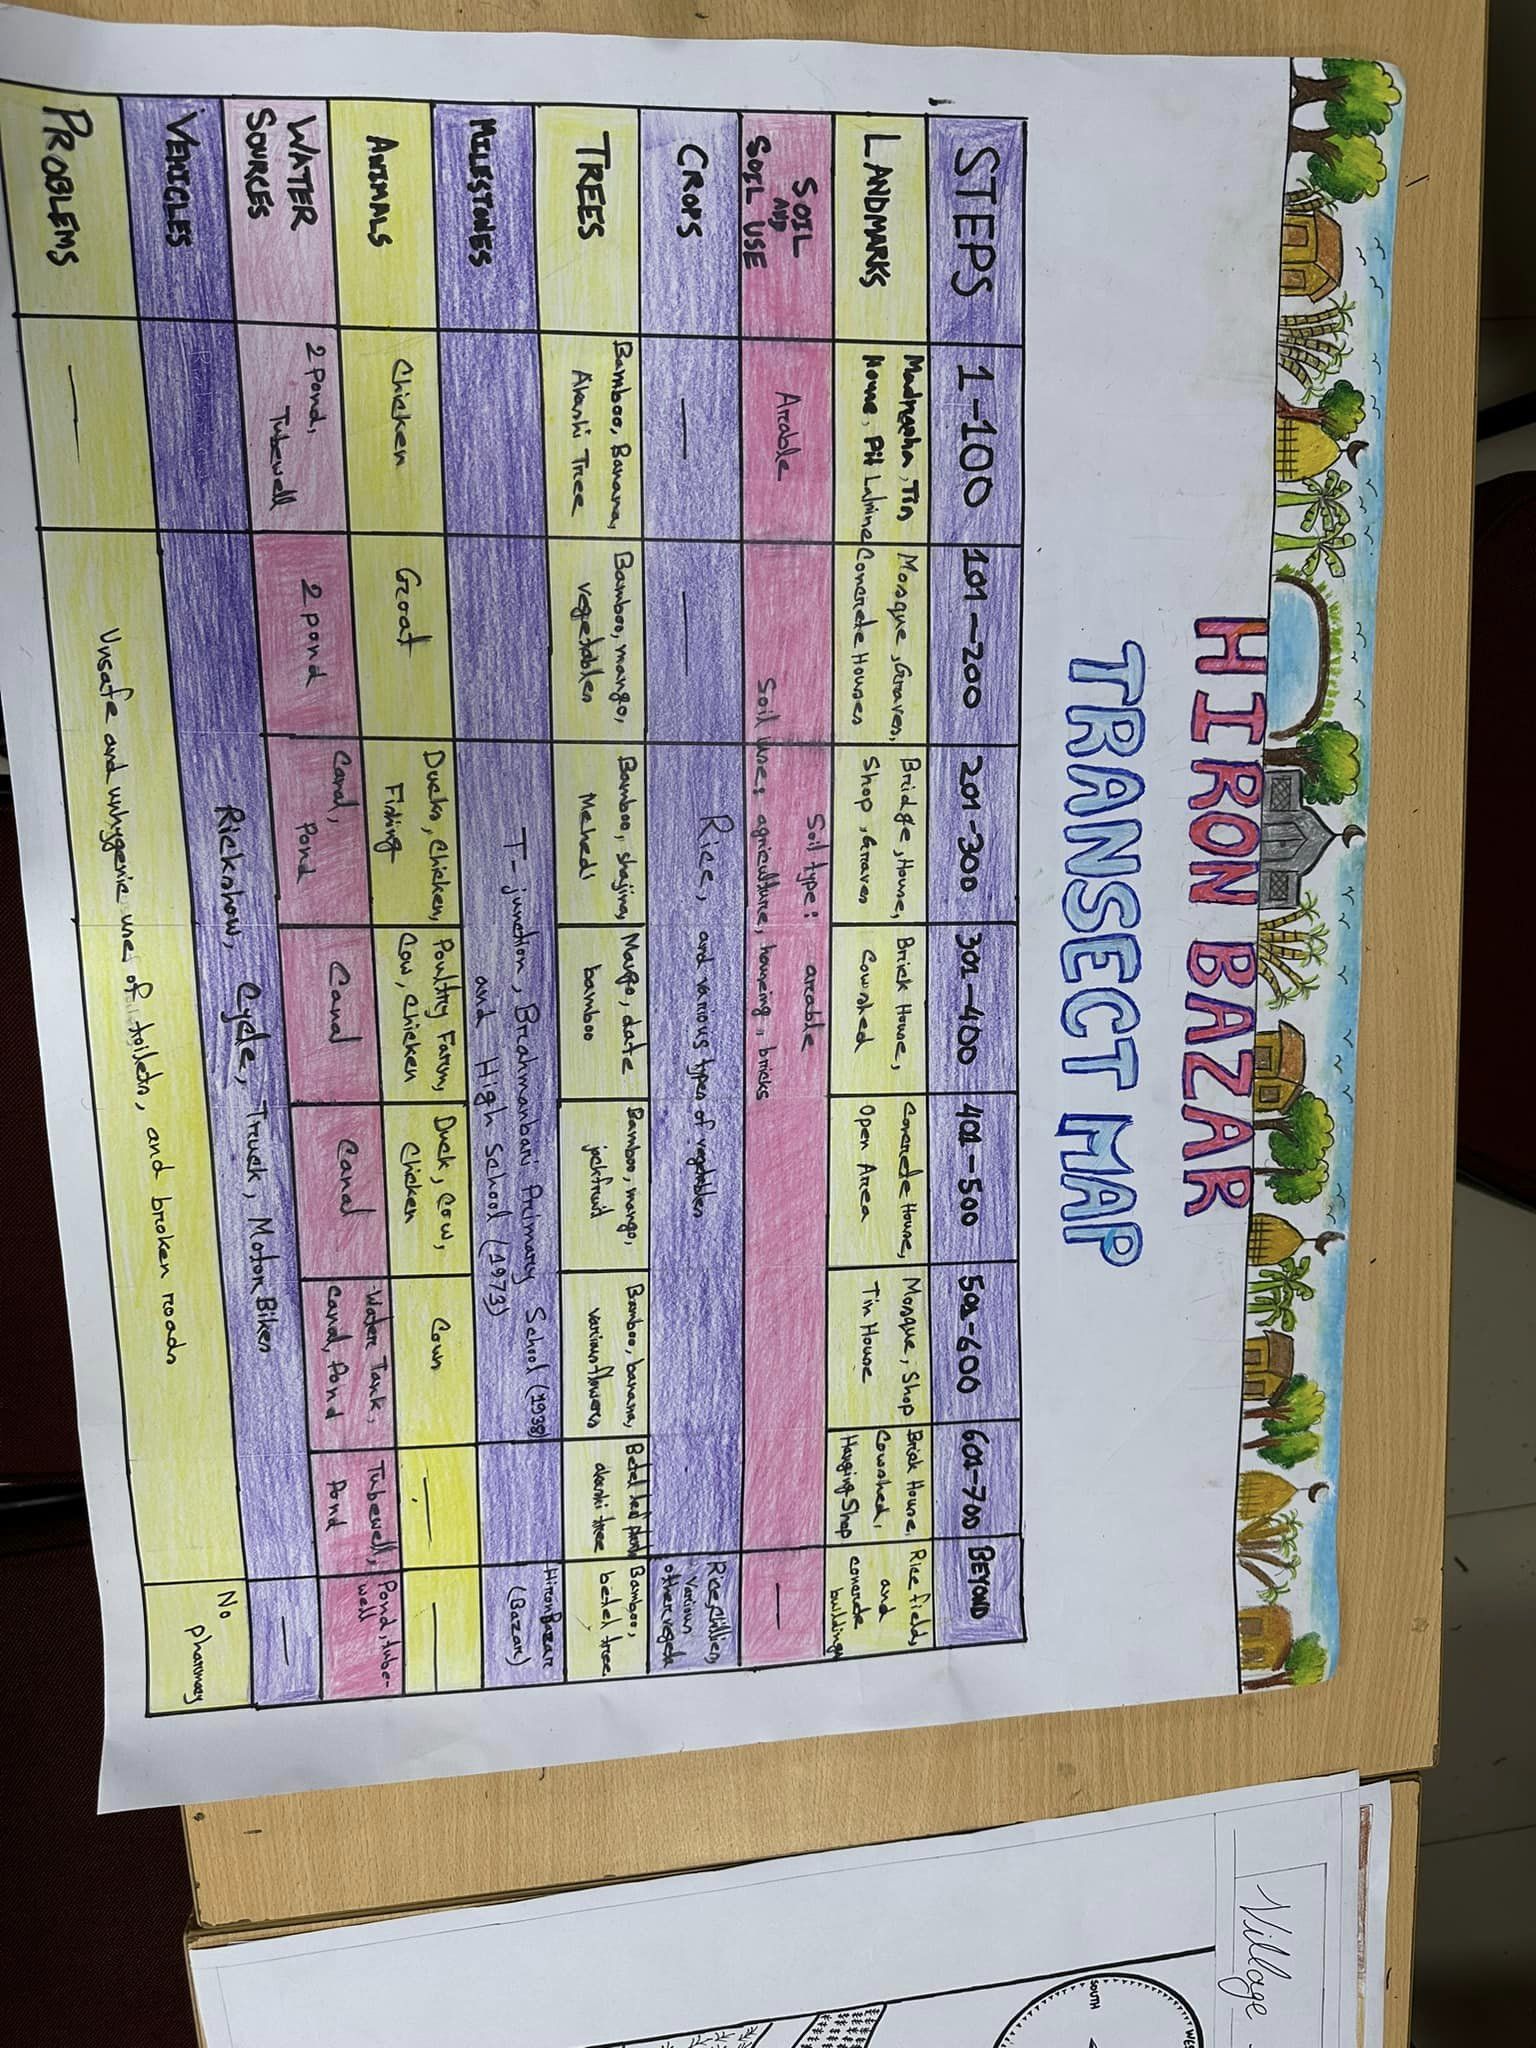 HIRON BAZAR
TRANSECT MAP
STEPS
1-100
101-200
201-300
301-400
401-500
501-600
601-700
BEYOND
LANDMARKS
Madrasha, Tin
House, Pit Latrine
Mosque, Graves,
Concrete Houses
Bridge, House,
Shop, Graves
Brick House,
Cowshed
Concrete House,
Open Area
Mosque, Shop
Tin House
Brick House,
Cowshed,
Hanging Shop
Rice field,
and
concrete
building
SOIL
AND
SOIL USE
Arable
Soil type: arable
Soil use: agriculture, housing, bricks
—
CROPS
—
—
Rice, and various types of vegetables
Rice,
various
other
TREES
Bamboo, Banana,
Akashi Tree
Bamboo, mango,
vegetables
Bamboo, shajina,
Mehedi
Mango, date
bamboo
Bamboo, mango,
jackfruit
Bamboo, banana,
various flowers
Betel
akashi tree
Bamboo,
betel tree
MILESTONES
T-junction, Brahmanbari Primary School (1938)
and High School (1973)
Hiron Bazare
(Bazar)
ANIMALS
Chicken
Goat
Ducks, Chicken,
Fishing
Poultry Farm,
Cow, Chicken
Duck, Cow,
Chicken
Cows
—
—
WATER
SOURCES
2 pond,
Tubewell
2 pond
Canal,
Pond
Canal
Canal
Water Tank,
Canal, Pond
Tubewell,
Pond
Pond, tube-
well
VEHICLES
Rickshow, Cycle, Truck, Motor Bikes
—
PROBLEMS
—
Unsafe and unhygenic use of toilets, and broken roads
No
pharmacy
Village
SOUTH